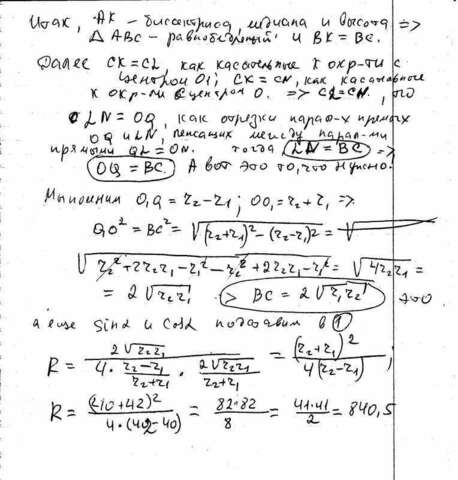 Итак, AK - биссектриса, медиана и высота =>
△ ABC - равнобедренный и BK = BC.
Далее CK=CL, как касательные к окр-ти с
центром O₁; CK = CN, как касательные
к окр-ти с центром O. => CL=CN,
LN = OQ, как отрезки парал-х прямых
OQ и LN, лежащих между парал-ми
прямыми QL = ON. тогда LN = BC =>
OQ = BC. А вот это то, что нужно.
Мы помним O₁Q = r₂-r₁; OO₁ = r₂+r₁ =>
QO² = BC² = √((r₂+r₁)²-(r₂-r₁)²) = √
√(r₂²+2r₂r₁-r₁²-r₂²+2r₂r₁-r₁²) = √(4r₂r₁) =
= 2√(r₂r₁) => BC = 2√(r₁r₂) это
а еще sinα и cosα подставим в ①
R = 2√(r₂r₁) / (4·(r₂-r₁)/(r₂+r₁)·2√(r₂r₁)/(r₂+r₁)) = (r₂+r₁)²/(4(r₂-r₁));
R = (40+42)²/(4·(42-40)) = 82·82/8 = 41·41/2 = 840,5